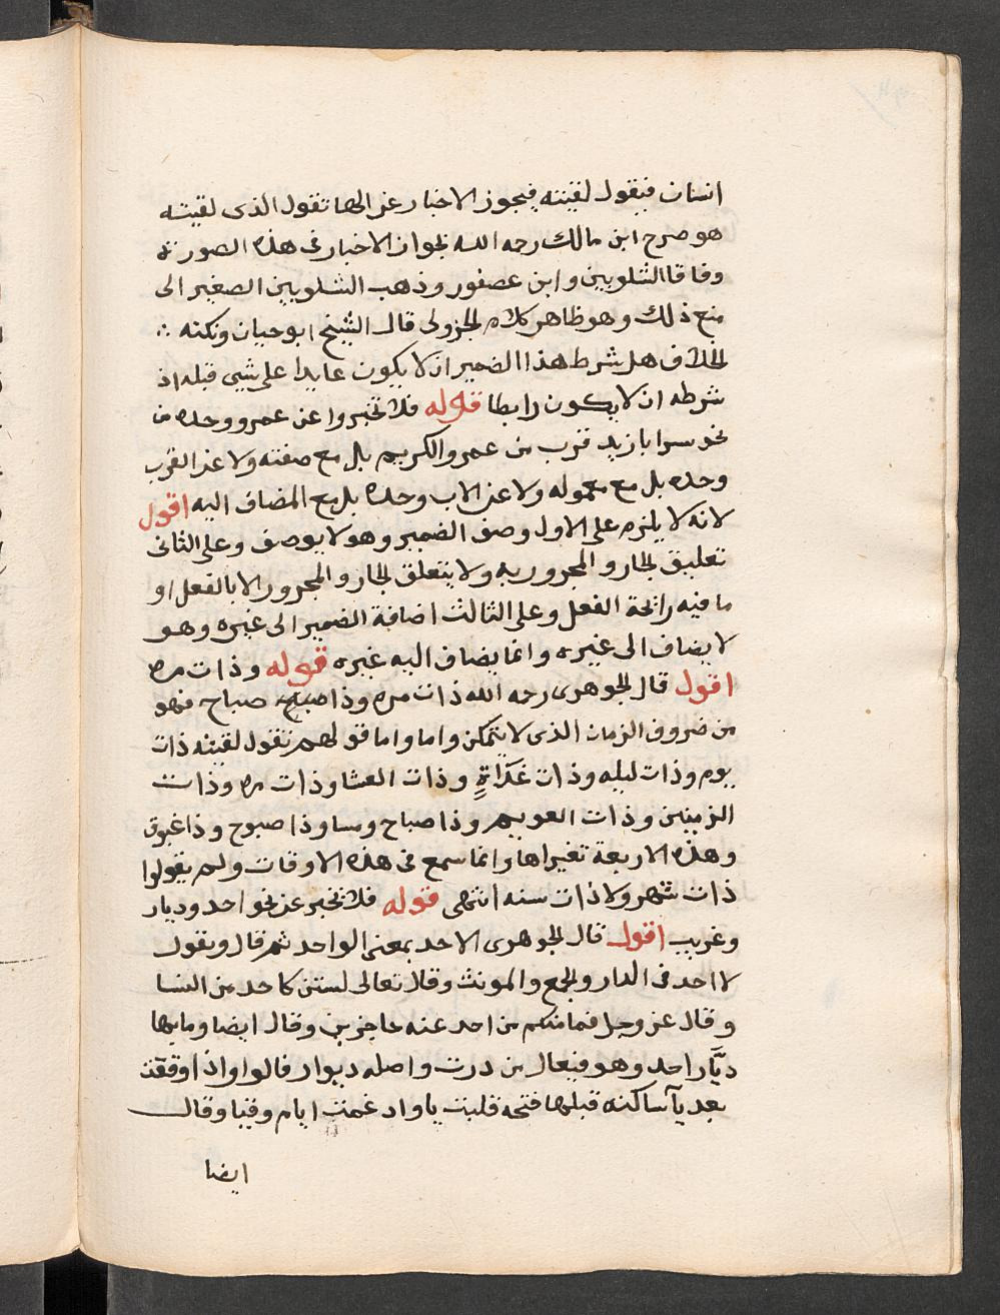 انسان فيقول لقيته فيجوز الاخبار عن الها تقول الذى لقيته
هو صرح ابن مالك رحمه الله بجواز الاخبار فى هذه الصورة
وفاقا الشلوبين وابن عصفور وذهب الشلوبين الصغير الى
منع ذلك وهو ظاهر كلام الجزولى قال الشيخ ابو حيان ونكته ∴
الخلاف هل شرط هذا الضمير ان لا يكون عايدا على شيى قبله اذ
شرطه ان لا يكون رابطا قوله فلا تخبروا عن عمرو وحده من
نحو سرا بازيد قرب من عمرو الكريم بل مع صفته ولا عن القرب
وحده بل مع معموله ولا عن الاب وحده بل مع المضاف اليه اقول
لانه لا يلزم على الاول وصف الضمير وهو لا يوصف وعلى الثانى
تعليق الجار والمجرور به ولا يتعلق الجار والمجرور الا بالفعل او
ما فيه رائحة الفعل وعلى الثالث اضافة الضمير الى غيره وهو
لا يضاف الى غيره وانما يضاف اليه غيره قوله وذات مره
اقول قال الجوهرى رحمه الله ذات مره وذا صباح صباح فهو
من ضروف الزمان الذى لا يتمكن واما واما قولهم تقول لقيته ذات
يوم وذات ليله وذات غداةٍ وذات العشا وذات مره وذات
الزمين وذات العويم وذا صباح ومسا وذا صبوح وذا غبوق
وهذه الاربعة تغيراها وانما سمع فى هذه الاوقات ولم يقولوا
ذات شهر ولا ذات سنه انتهى قوله فلا تخبر عن نحو احد وديار
وغريب اقول قال الجوهرى الاحد بمعنى الواحد ثم قال ويقول
لا احد فى الدار والجمع والمونث وقال تعالى لستن كاحد من النسا
وقال عز وجل فما منكم من احد عنه حاجزين وقال ايضا وما بها
ديَّار احد وهو فيعال من درت واصله ديوار قالوا واذا وقعت
بعد يآ ساكنه قبلها فتحه قلبت يا وادغمت ايام وقيا وقال
ايضا